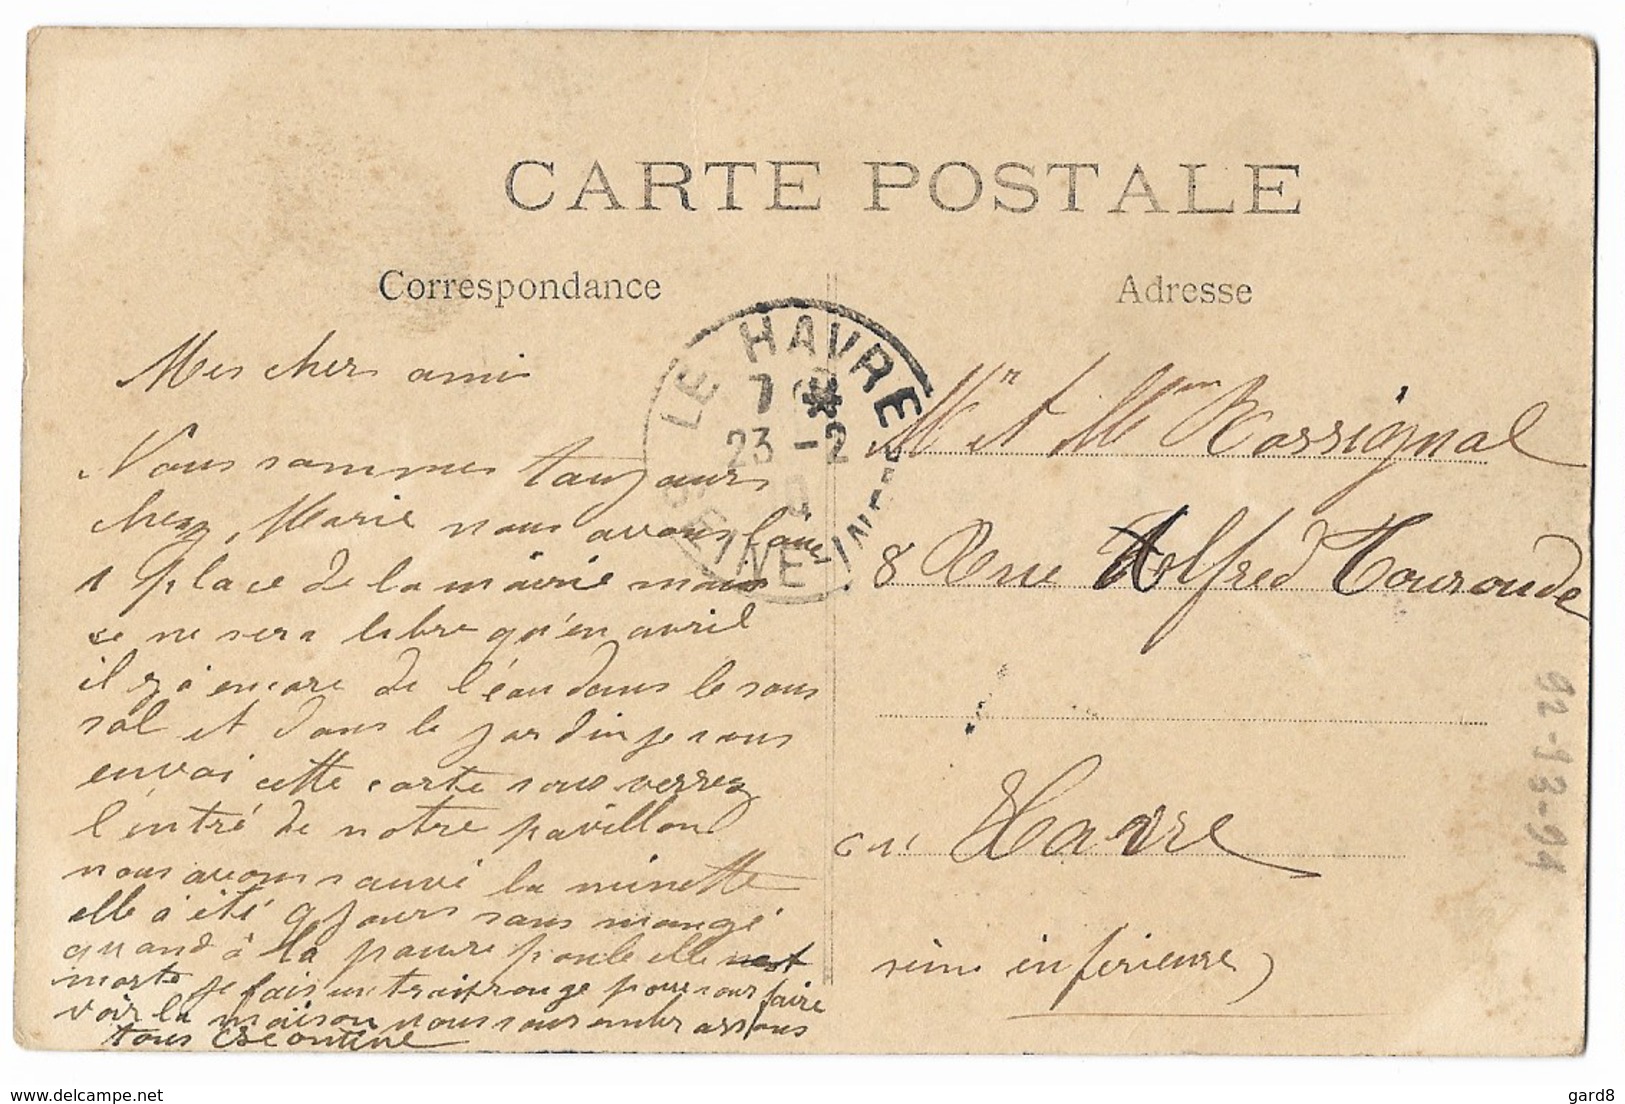 CARTE POSTALE
Correspondance
Mes chers amis
Nous sommes toujours
chez Marie nous avons loués
1 place de la mairie mais
ce ne sera libre qu'en avril
il y à encore de l'éau dans le sous
sol et dans le jardin je vous
envoi cette carte vous verrez
l'entré de notre pavillon
nous avons sauvé la minette
elle à été 9 jours sans mangé
quand à la pauvre poule elle est
morte je fais un trait rouge pour vous faire
voir la maison nous vous embrassons
tous
Adresse
Mr et Mme Rossignol
8 Rue Alfred Touroude
au Havre
seine inférieure
LE HAVRE
7
23 - 2
SEINE INF
92-13-94
gard8